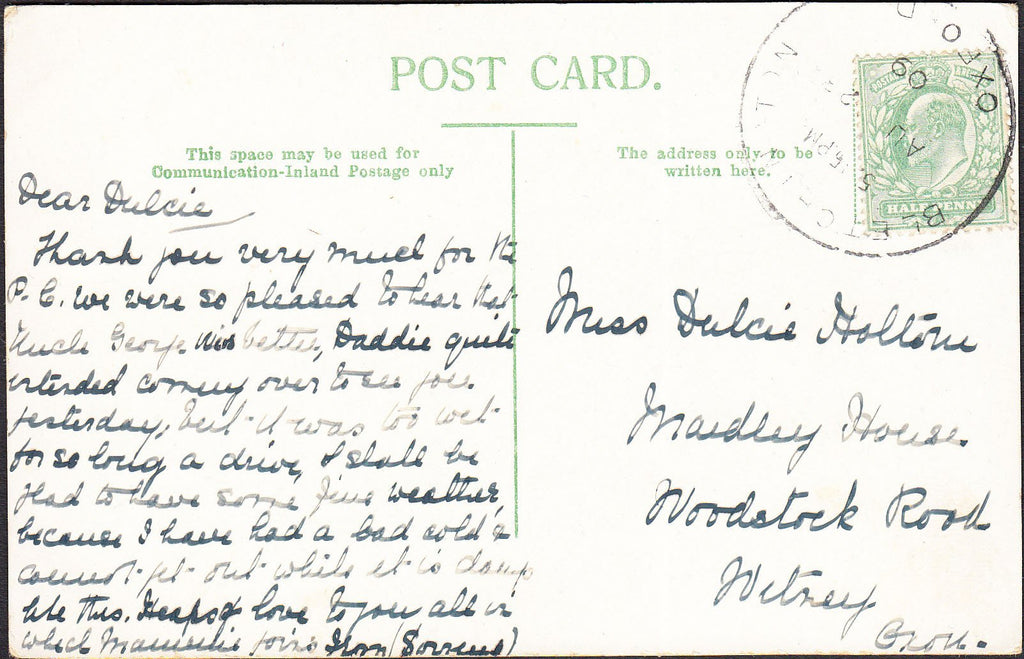 POST CARD.
This space may be used for
Communication-Inland Postage only
Dear Dulcie
Thank you very much for the
P.C. we were so pleased to hear that
Uncle George was better, Daddie quite
intended coming over to see you
yesterday, but it was too wet
for so long a drive, I shall be
glad to have some fine weather,
because I have had a bad cold &
cannot get out while it is damp
like this. Heaps of love to you all in
which Mammie joins from
The address only to be
written here.
Miss Dulcie Holtom
House
Woodstock Road
Witney
Oxon.
BLETCHINGTON
OXFORD
5.15 PM
AU
09
HALFPENNY